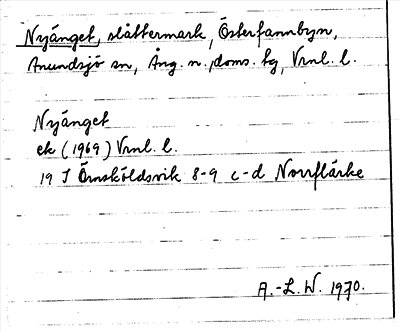 Nyänget, slåttermark, Österfannbyn,
Anundsjö sn, Ång. n. doms. tg, Vrnl. l.
Nyänget
ek (1969) Vrnl. l.
19 I Örnsköldsvik 8-9 c-d Norrflärke
A.-L. W. 1970.